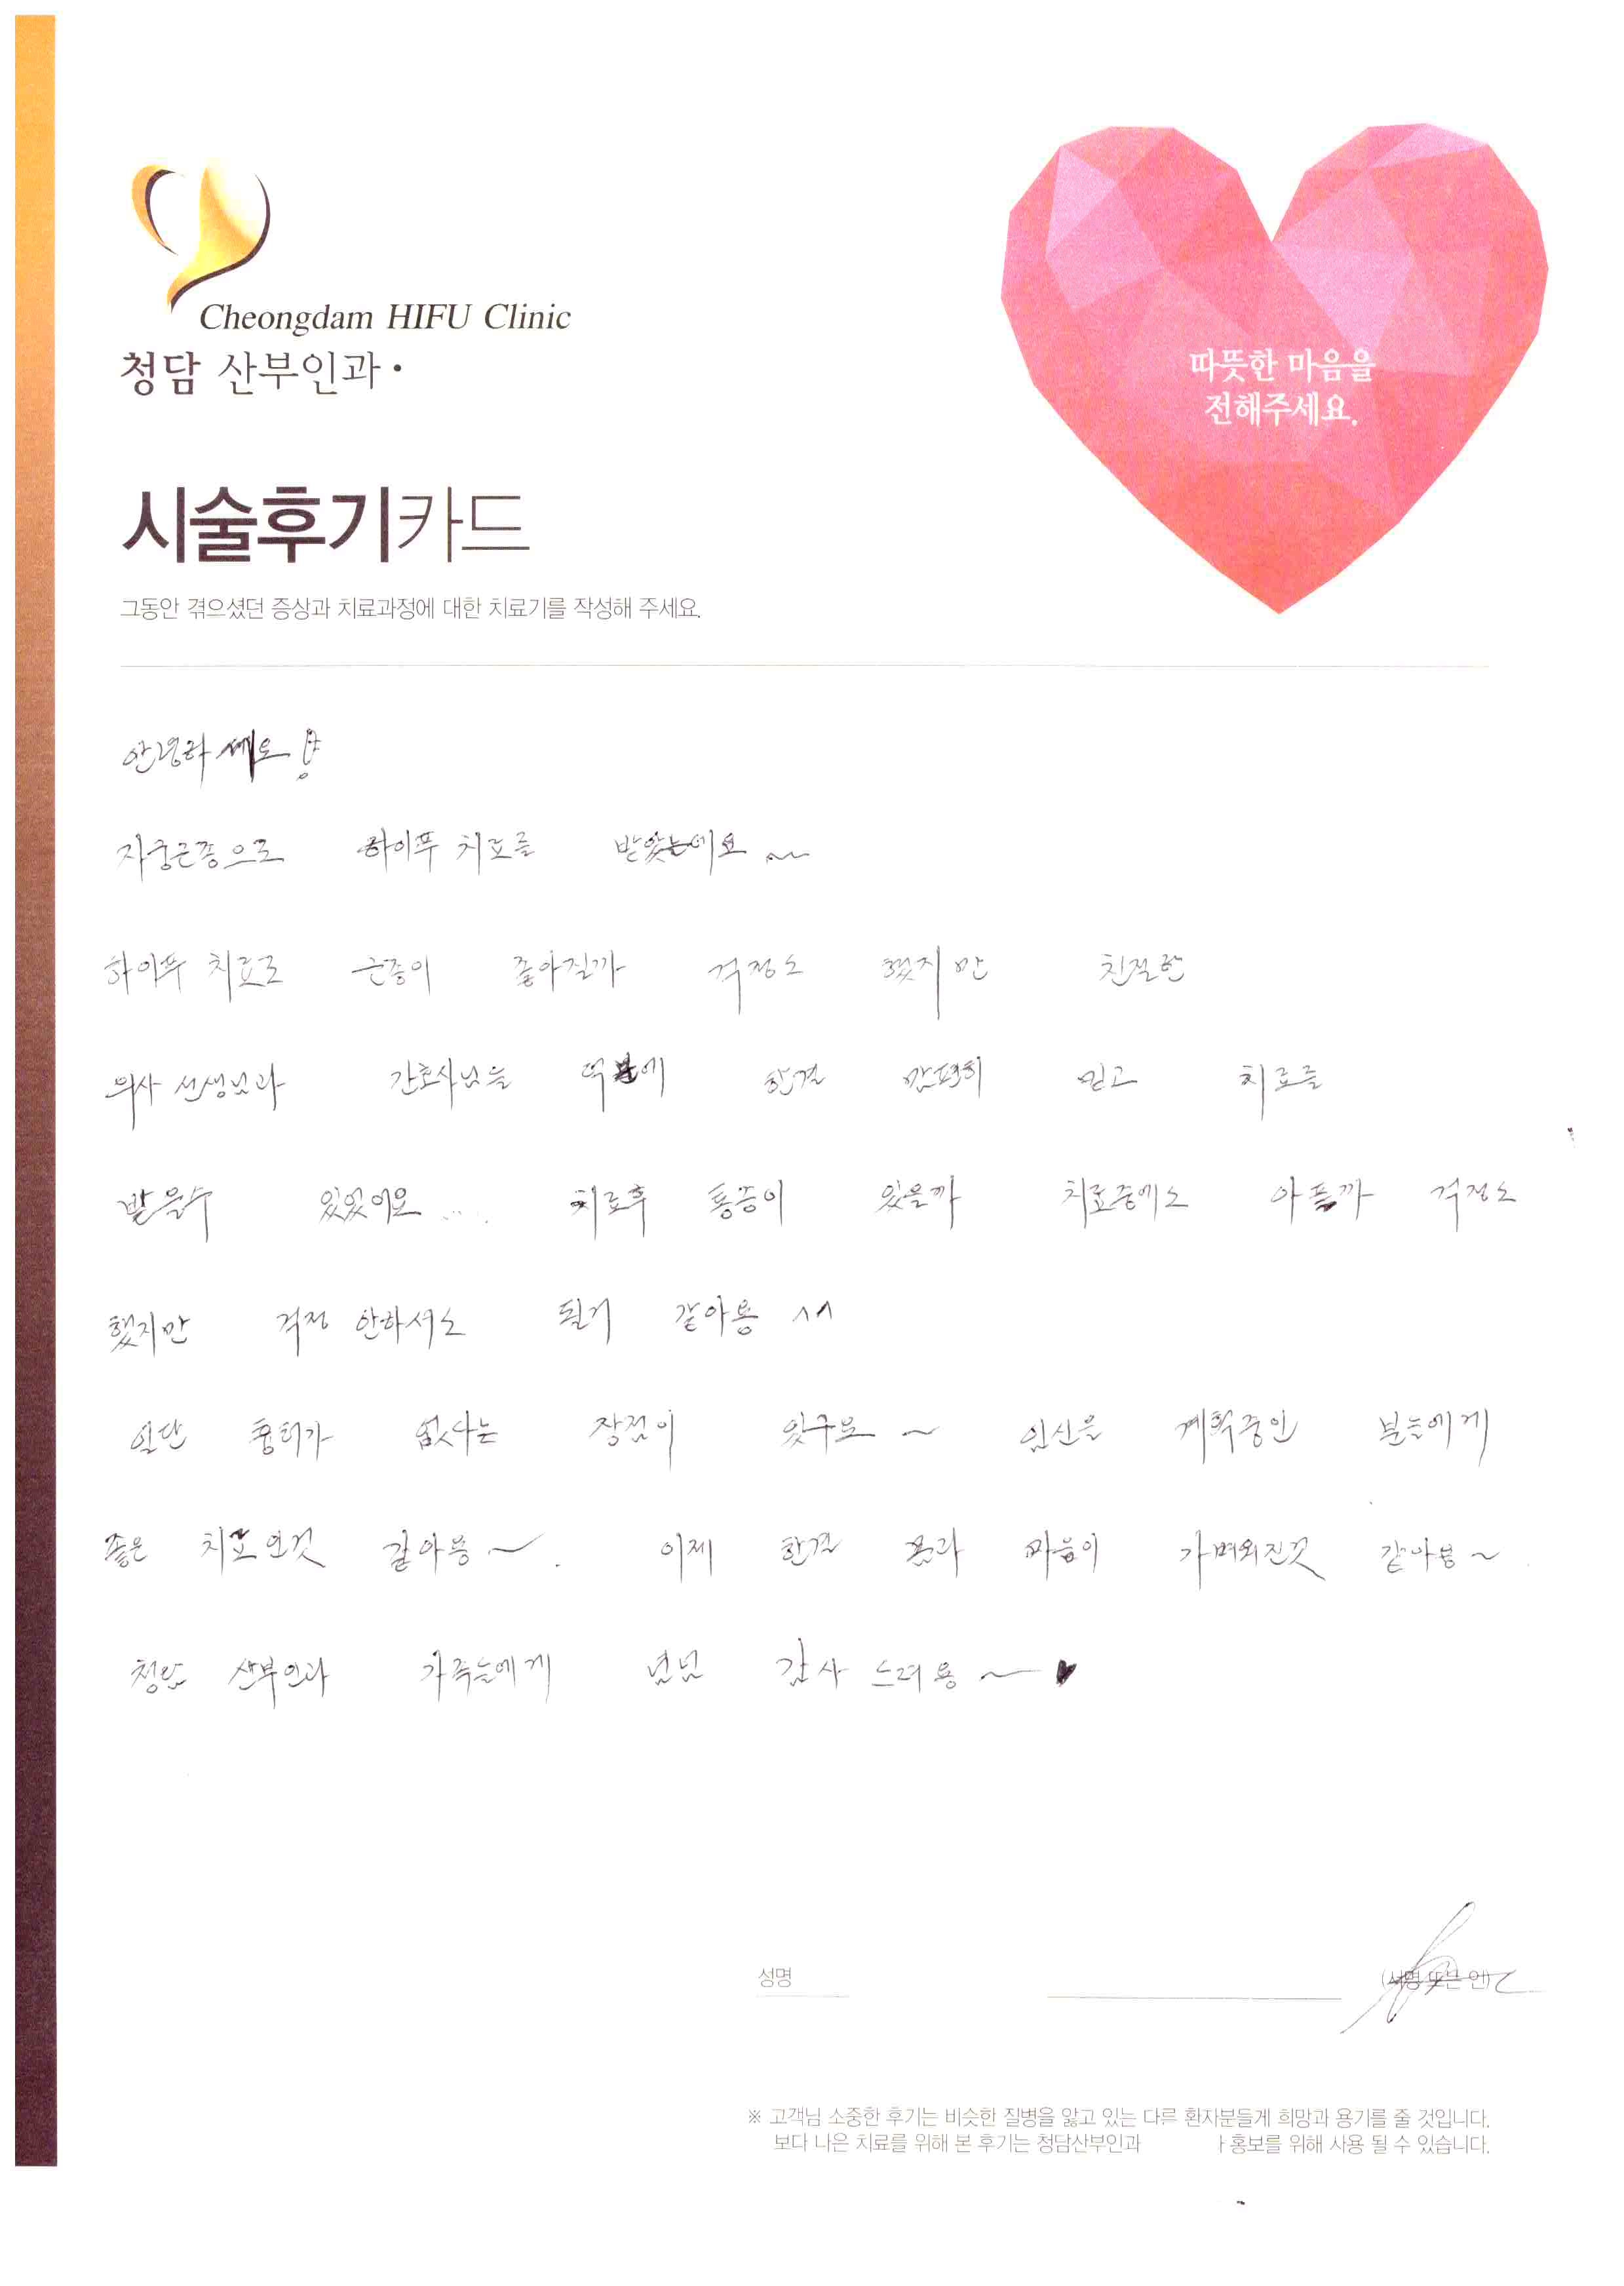 Cheongdam HIFU Clinic
청담 산부인과
따뜻한 마음을
전해주세요.
시술후기카드
그동안 겪으셨던 증상과 치료과정에 대한 치료기를 작성해 주세요.
안녕하세요!
자궁근종으로 하이푸 치료를 받았는데요~
하이푸 치료로 근종이 좋아질까 걱정도 했지만 친절한
의사 선생님과 간호사님들 덕분에 한결 맘편히 믿고 치료를
받을수 있었어요....
치료후 통증이 있을까 치료중에도 아플까 걱정도
했지만 걱정 안하셔도 될거 같아용 ^^
일단 흉터가 없다는 장점이 있구요~ 임신을 계획중인 분들에게
좋은 치료인것 같아용~. 이제 한결 몸과 마음이 가벼워진것 같아용~
청담 산부인과 가족들에게 넘넘 감사 드려용~♥
성명
(서명 또는 인)
※ 고객님 소중한 후기는 비슷한 질병을 앓고 있는 다른 환자분들게 희망과 용기를 줄 것입니다.
보다 나은 치료를 위해 본 후기는 청담산부인과 홍보를 위해 사용 될 수 있습니다.